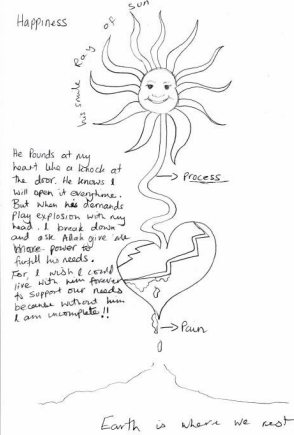 Happiness
his smile Ray of sun
He Pounds at my
heart like a knock at
the door. He knows I
will open it everytime.
But when his demands
Play explosion with my
head. I break down
and ask Allah give me
more power to
fulfil his needs.
For, I wish I could
live with him forever
to support our needs
because without him
I am incomplete!!
Process
Pain
Earth is where we rest